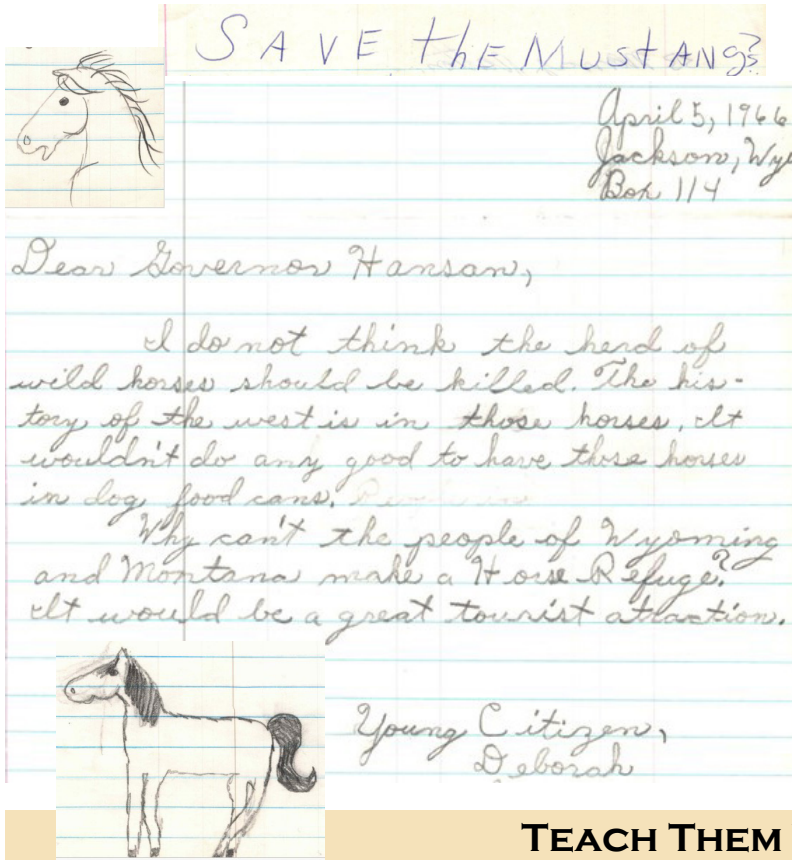 SAVE thE MUStANgs
April 5, 1966
Jackson, Wyo
Box 114
Dear Governor Hansan,
I do not think the herd of
wild horses should be killed. The his-
tory of the west is in those horses. It
wouldn't do any good to have those horses
in dog food cans.
Why can't the people of Wyoming
and Montana make a Horse Refuge?
It would be a great tourist attraction.
Young Citizen,
Deborah
TEACH THEM